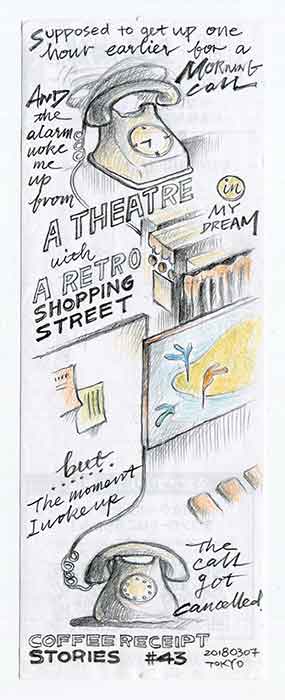 Supposed to get up one
hour earlier for a
MORNING
CALL
AND
the
alarm
woke
me
up
from
A THEATRE
in
MY
DREAM
with
A RETRO
SHOPPING
STREET
but
The moment
I woke up
The
call
got
cancelled!
COFFEE RECEIPT
STORIES #43
20180307
TOKYO